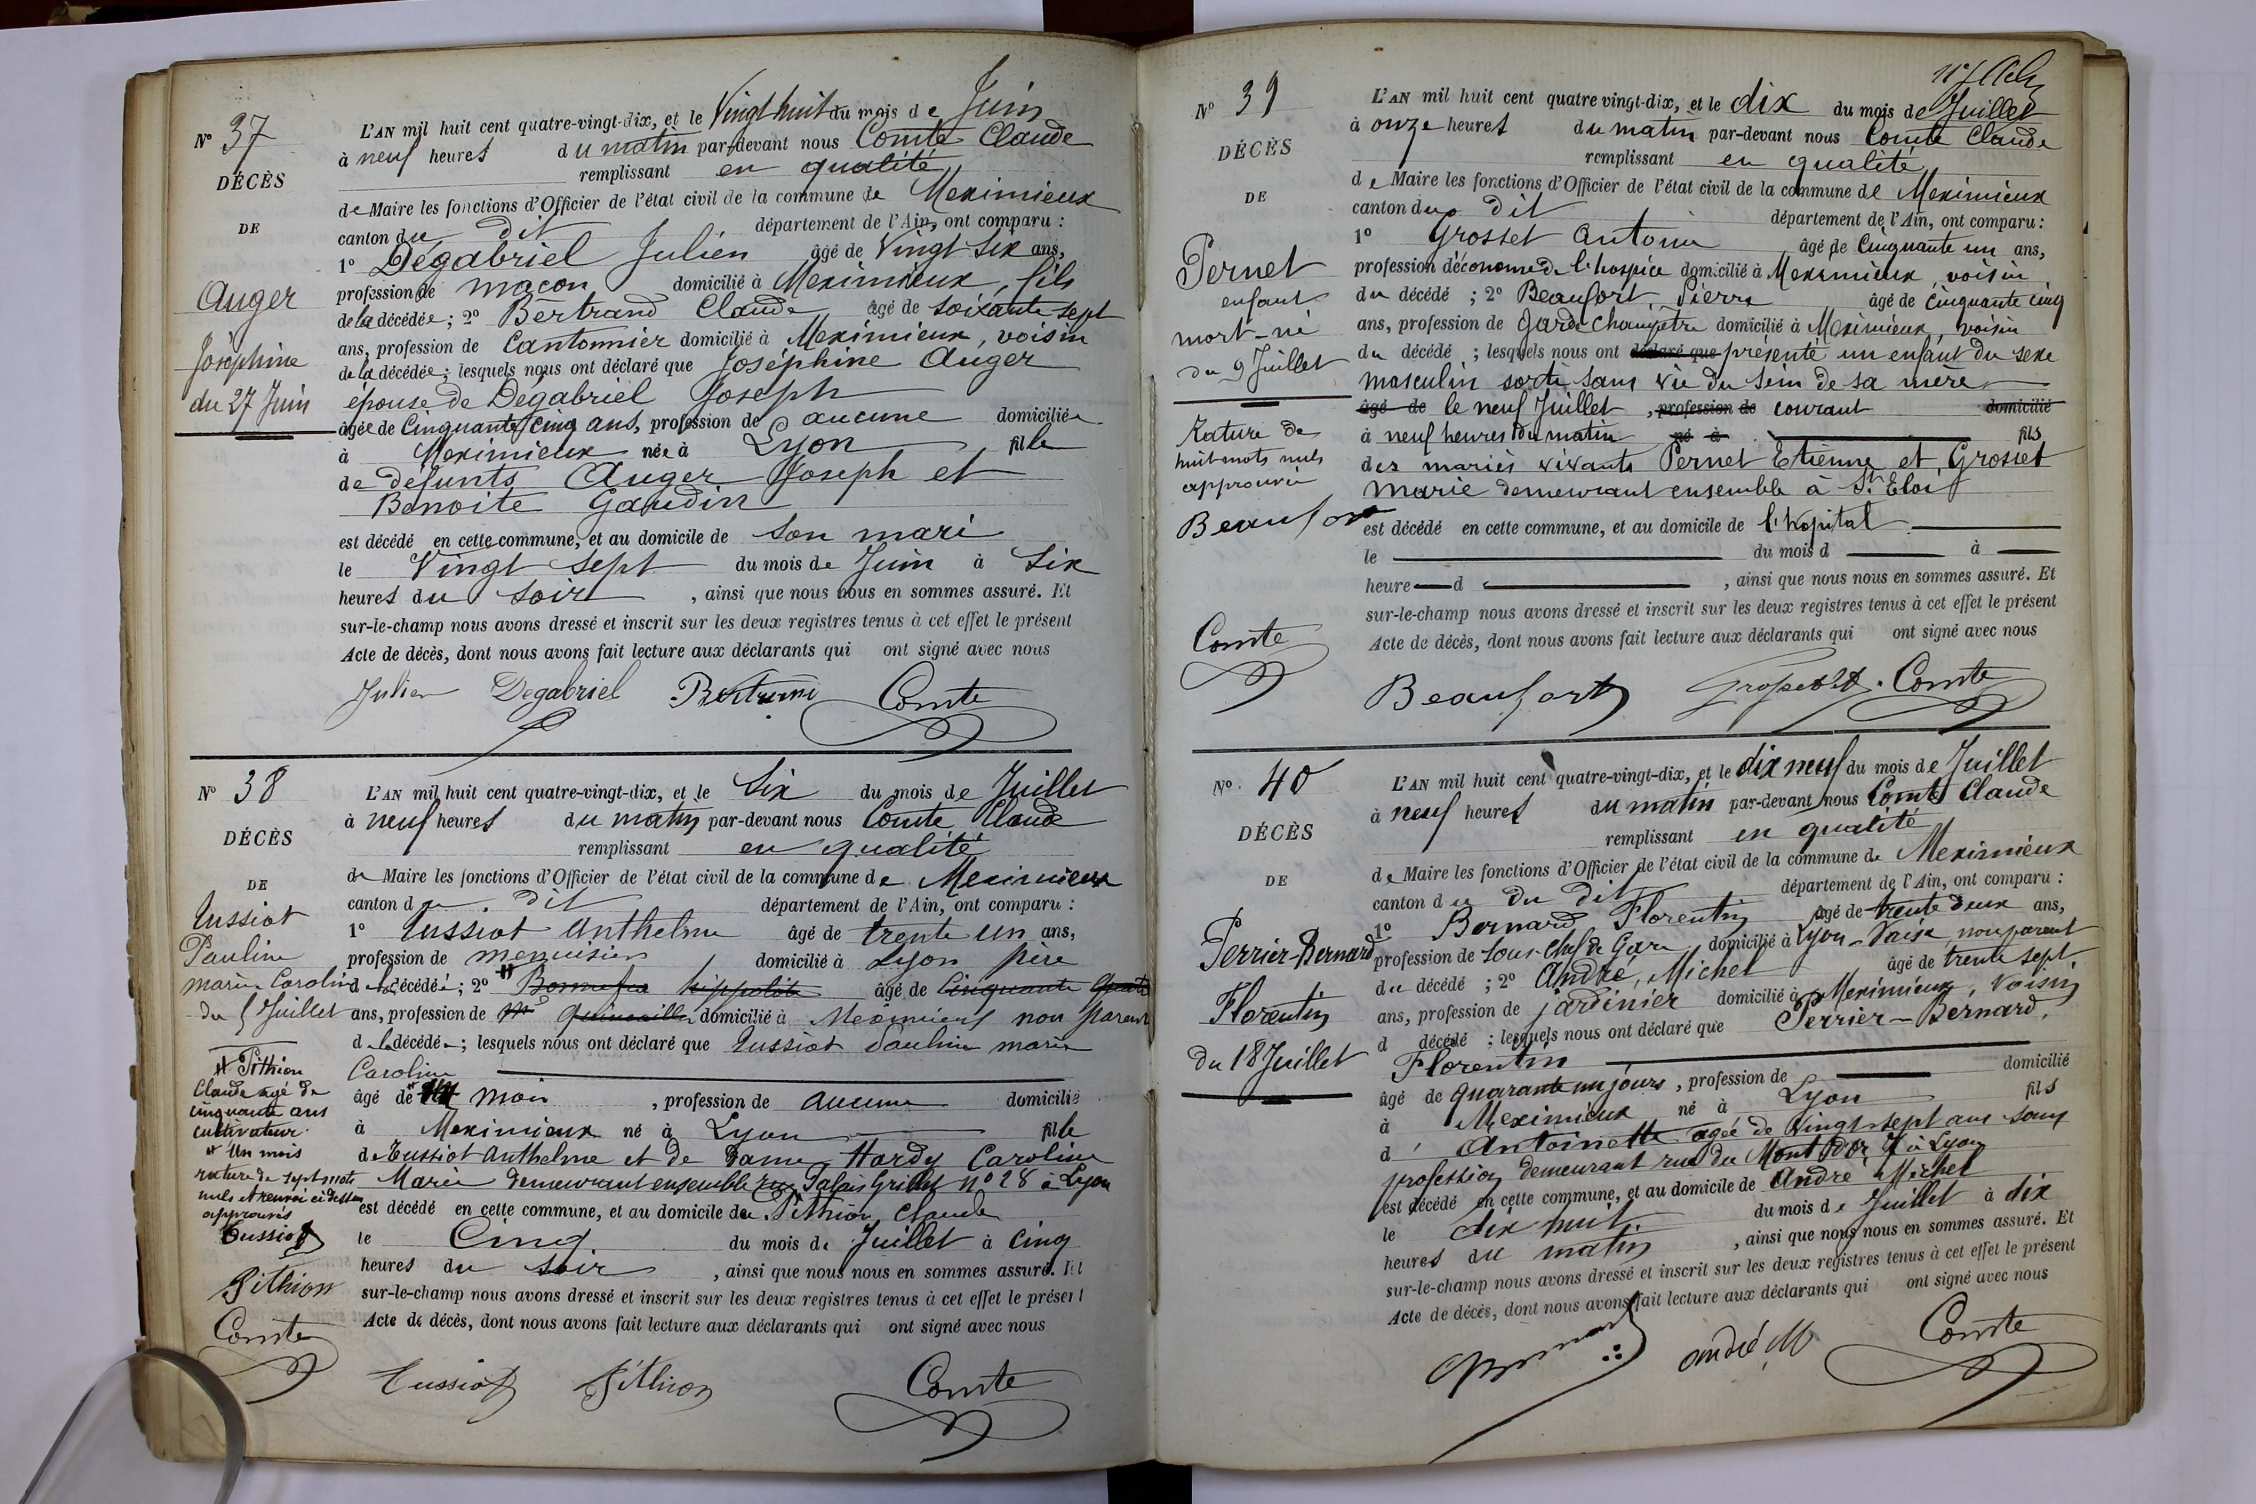 N° 37
DÉCÈS
DE
Auger
Joséphine
du 27 Juin
L'AN mil huit cent quatre-vingt-dix, et le Vingt huit du mois de Juin
à neuf heures du matin par-devant nous Comte Claude
remplissant en qualité
de Maire les fonctions d'Officier de l'état civil de la commune de Meximieux
canton du dit département de l'Ain, ont comparu :
1° Dégabriel Julien âgé de Vingt six ans,
profession de maçon domicilié à Meximieux, fils
de la décédée ; 2° Bertrand Claude âgé de soixante sept
ans, profession de Cantonnier domicilié à Meximieux, voisin
de la décédée ; lesquels nous ont déclaré que Joséphine Auger
épouse de Dégabriel Joseph
âgée de Cinquante cinq ans, profession de aucune domiciliée
à Meximieux née à Lyon fille
de défunts Auger Joseph et
Benoite Gaudin
est décédé en cette commune, et au domicile de son mari
le Vingt sept du mois de Juin à Six
heures du soir, ainsi que nous nous en sommes assuré. Et
sur-le-champ nous avons dressé et inscrit sur les deux registres tenus à cet effet le présent
Acte de décès, dont nous avons fait lecture aux déclarants qui ont signé avec nous
Julien Degabriel Bertrand Comte
N° 38
DÉCÈS
DE
Tussiot
Pauline
marie Caroline
du 5 Juillet
# Pithion
Claude agé de
cinquante ans
cultivateur.
# Un mois
rature de sept mots
nuls et renvoi ci dessus
approuvés
Tussiot
Pithion
Comte
L'AN mil huit cent quatre-vingt-dix, et le Six du mois de Juillet
à neuf heures du matin par-devant nous Comte Claude
remplissant en qualité
de Maire les fonctions d'Officier de l'état civil de la commune de Meximieux
canton du dit département de l'Ain, ont comparu :
1° Tussiot Anthelme âgé de trente un ans,
profession de menuisier domicilié à Lyon père
de la décédée ; 2° # hippolite âgé de Cinquante
ans, profession de domicilié à Meximieux non parent
de la décédée ; lesquels nous ont déclaré que Tussiot Pauline marie
Caroline
âgé de # mois, profession de aucune domicilié
à Meximieux né à Lyon fille
de Tussiot Anthelme et de Dame Hardy Caroline
Marie demeurant ensemble rue Palais Grillet n° 28 à Lyon
est décédé en cette commune, et au domicile de Pithion Claude
le Cinq du mois de Juillet à cinq
heures du soir, ainsi que nous nous en sommes assuré. Et
sur-le-champ nous avons dressé et inscrit sur les deux registres tenus à cet effet le présent
Acte de décès, dont nous avons fait lecture aux déclarants qui ont signé avec nous
Tussiot Pithion Comte
N° 39
DÉCÈS
DE
Pernet
enfant
mort-né
du 9 Juillet
Rature de
huit mots nuls
approuvée
Beaufort
Comte
L'AN mil huit cent quatre vingt-dix, et le dix du mois de Juillet
à onze heures du matin par-devant nous Comte Claude
remplissant en qualité
de Maire les fonctions d'Officier de l'état civil de la commune de Meximieux
canton du dit département de l'Ain, ont comparu :
1° Grosset Antoine âgé de Cinquante un ans,
profession d'économe de l'hospice domicilié à Meximieux, voisin
du décédé ; 2° Beaufort Pierre âgé de cinquante cinq
ans, profession de garde champêtre domicilié à Meximieux, voisin
du décédé ; lesquels nous ont déclaré que présenté un enfant du sexe
masculin sorti sans vie du sein de sa mère
âgé de le neuf Juillet, profession de courant domicilié
à neuf heures du matin né à fils
des mariés vivants Pernet Etienne et Grosset
marie demeurant ensemble à St Eloi
est décédé en cette commune, et au domicile de l'hopital
le du mois d à
heure d, ainsi que nous nous en sommes assuré. Et
sur-le-champ nous avons dressé et inscrit sur les deux registres tenus à cet effet le présent
Acte de décès, dont nous avons fait lecture aux déclarants qui ont signé avec nous
Beaufort Comte
N° 40
DÉCÈS
DE
Perrier-Bernard
Florentin
du 18 Juillet
L'AN mil huit cent quatre-vingt-dix, et le dix neuf du mois de Juillet
à neuf heures du matin par-devant nous Comte Claude
remplissant en qualité
de Maire les fonctions d'Officier de l'état civil de la commune de Meximieux
canton du du dit département de l'Ain, ont comparu :
1° Bernard Florentin âgé de trente deux ans,
profession de Sous-chef de Gare domicilié à Lyon-Vaise non parent
du décédé ; 2° André, Michel âgé de trente sept
ans, profession de jardinier domicilié à Meximieux, Voisin
d décédé ; lesquels nous ont déclaré que Perrier-Bernard,
Florentin
âgé de quarante un jours, profession de domicilié
à Meximieux né à Lyon fils
d' Antoinette agée de vingt-sept ans sans
profession demeurant rue du Mont d'Or, 7 à Lyon
est décédé en cette commune, et au domicile de André Michel
le dix huit du mois de Juillet à dix
heures du matin, ainsi que nous nous en sommes assuré. Et
sur-le-champ nous avons dressé et inscrit sur les deux registres tenus à cet effet le présent
Acte de décès, dont nous avons fait lecture aux déclarants qui ont signé avec nous
André M Comte